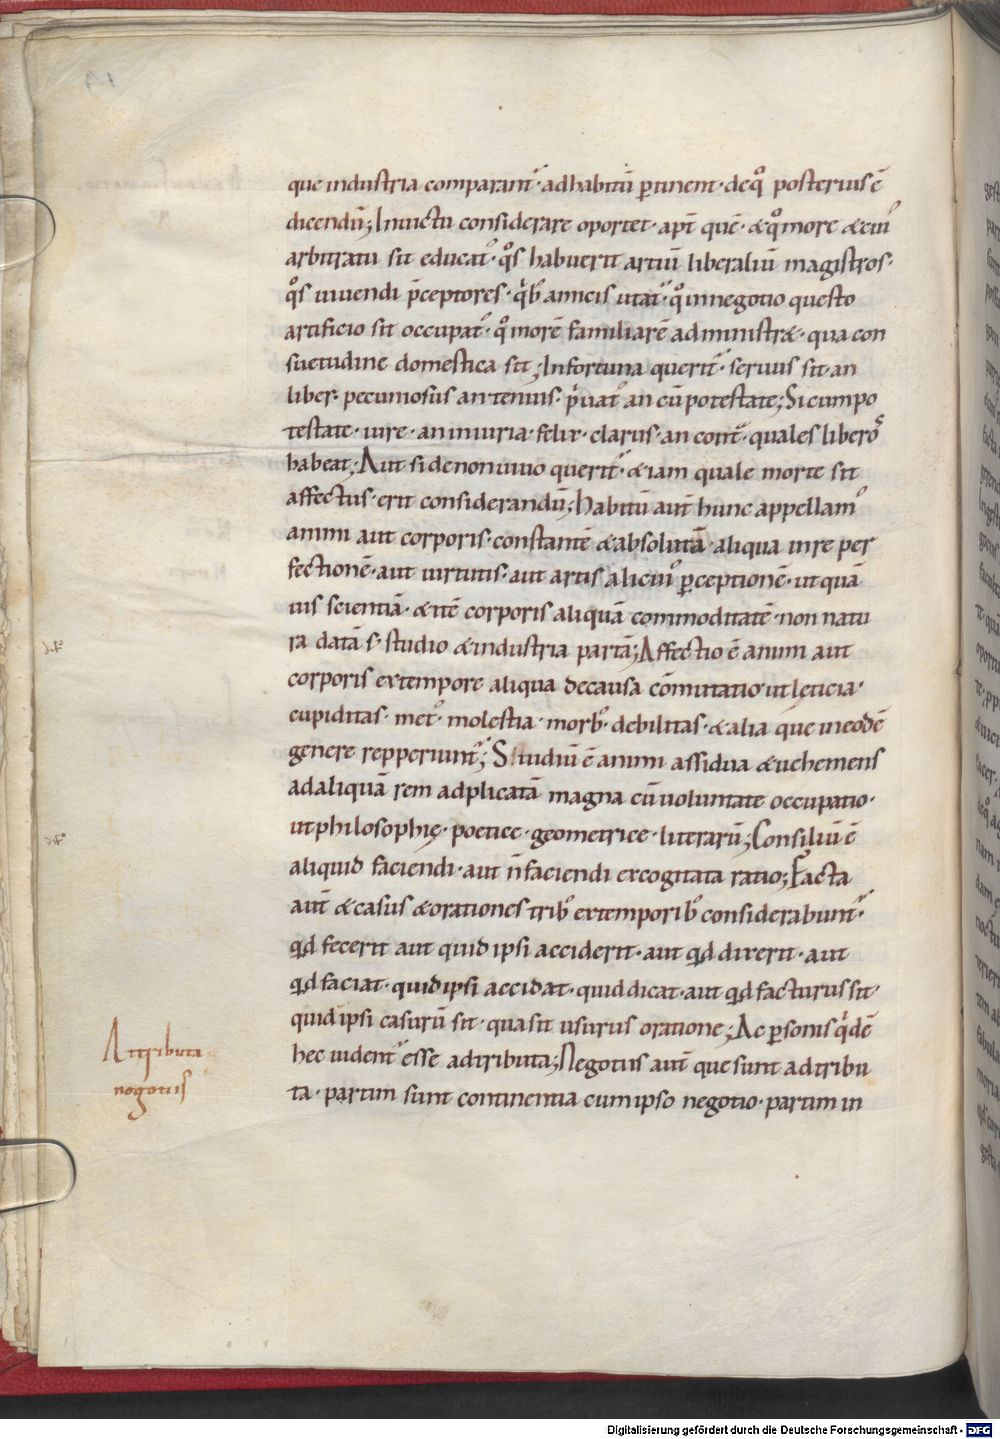 que industria comparant᷑· ad habitū ꝑtinent· deqͦ posterius ē
dicendū; In uictu considerare oportet· apt̄ quē· & qͦ more & eiuꝰ
arbitratu sit educatꝰ· qͦs habuerit artiū liberaliū magistros·
qͦs uiuendi p̄ceptores· qͥb; amicis utat᷑· qͦ in negotio questo
artificio sit occupatꝰ· qͦ morē familiarē administr&· qua con
suetudine domestica sit; In fortuna querit᷑· seruus sit· an
liber· pecuniosus an tenuis· pͥuatꝰ an cū potestate; Si cum po
testate· iure· an iniuria· felix· clarus· an cont᷑· quales liberoͦs
habeat; Aut si de non uiuo querit᷑· &iam quale morte sit
affectus· erit considerandū; Habitū aut̄ hunc appellamꝰ
animi aut corporis· constantē & absolutā· aliqua in re per
fectionē· aut uirtutis· aut artis alicuiꝰ ꝑceptionē· ut quā
uis scientiā· & itē corporis aliquā commoditatē· non natu
ra datā s; studio & industria partā; Affectio ē animi aut
corporis ex tempore aliqua de causa cōmutatio· ut lęticia·
cupiditas· metꝰ· molestia· morbꝰ· debilitas· & alia que in eodē
genere repperiunt᷑; Studiū ē animi assidua & uehemens
ad aliquā rem adplicatā magna cū uoluntate occupatio·
ut philosophię· poetice· geometrice· literarū; Consiliū ē
aliquid faciendi· aut n̄ faciendi excogitata ratio; Facta
aut̄ & casus & orationes trib; ex temporib; considerabunt᷑·
qd fecerit aut quid ipsi acciderit· aut qd dixerit· aut
qd faciat· quid ipsi accidat· quid dicat· aut qd facturus sit·
quid ipsi casurū sit· qua sit usurus oratione; Ac ꝑsonis qͥdē
hec uident᷑ esse adtributa; Negotiis aut̄ que sunt adtribu
ta· partim sunt continentia cum ipso negotio· partim in
Attributa
negotiis
Digitalisierung gefördert durch die Deutsche Forschungsgemeinschaft - DFG